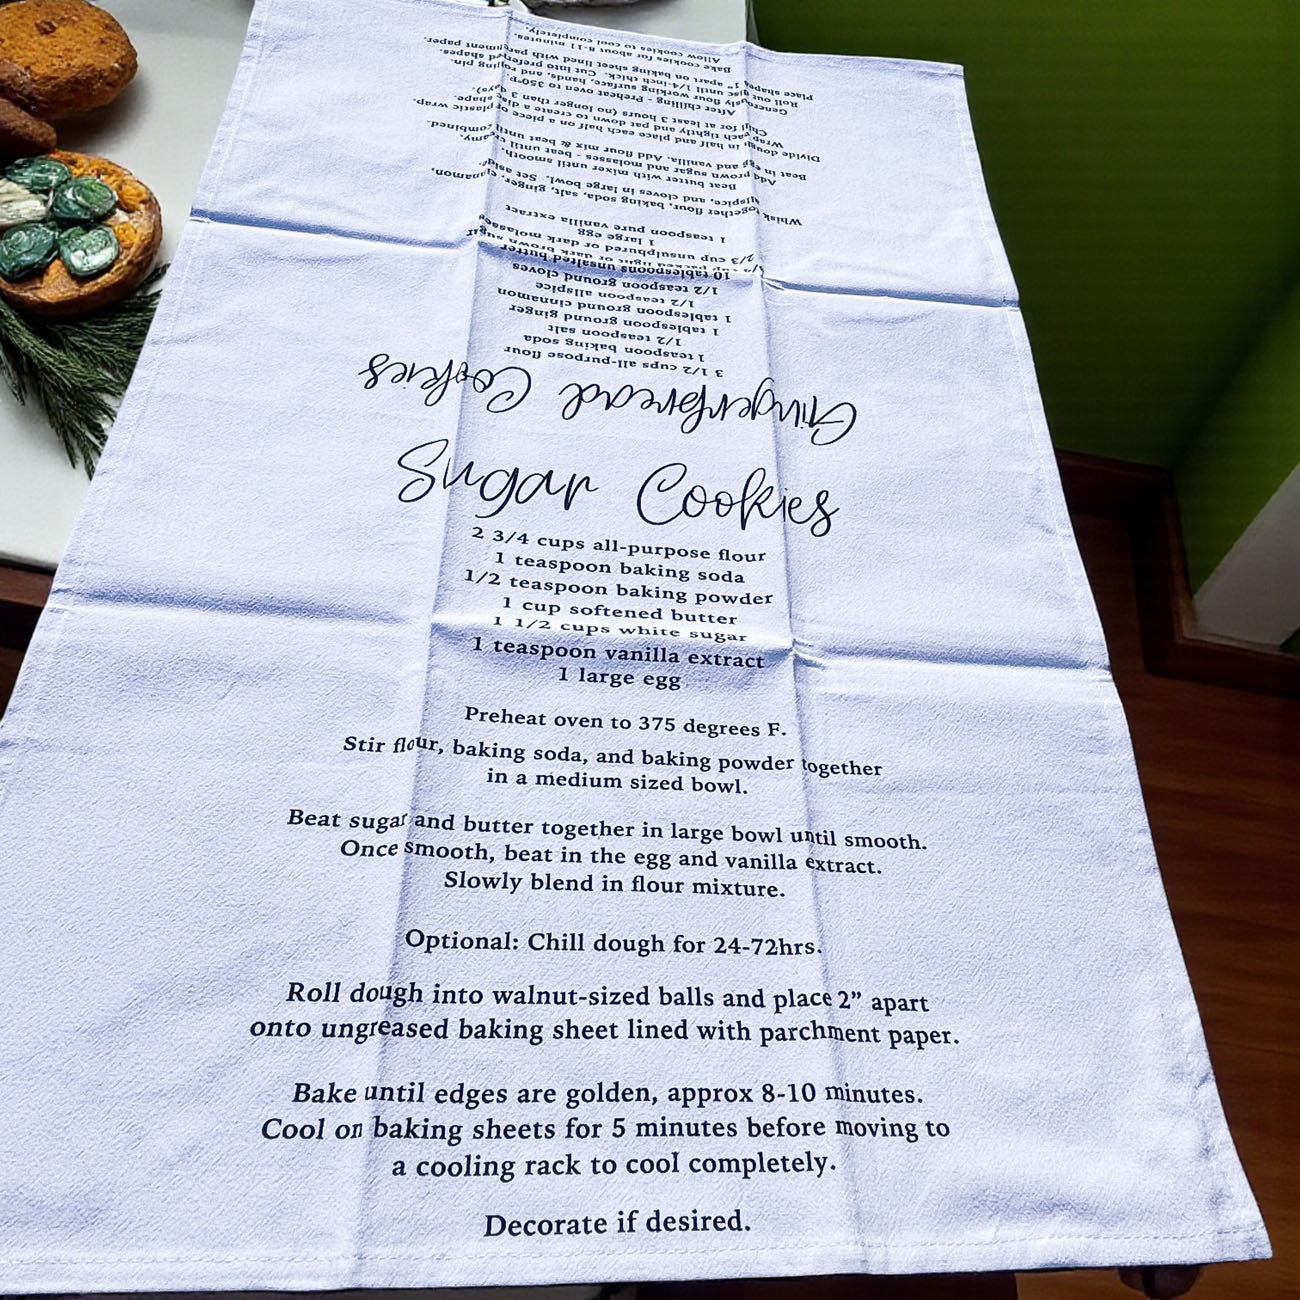 Gingerbread Cookies
3 1/2 cups all-purpose flour
1 teaspoon baking soda
1/2 teaspoon salt
1 tablespoon ground ginger
1 tablespoon ground cinnamon
1/2 teaspoon allspice
1/2 teaspoon ground cloves
10 tablespoons unsalted butter
cup packed light or dark brown sugar
2/3 cup unsulphured or dark molasses
1 large egg
1 teaspoon pure vanilla extract
Whisk together flour, baking soda, salt, ginger, cinnamon,
allspice, and cloves in large bowl. Set aside.
Beat butter with mixer until smooth.
Add brown sugar and molasses - beat until creamy.
Beat in egg and vanilla. Add flour mix & beat until combined.
Divide dough in half and place each half on a piece of plastic wrap.
Wrap each tightly and pat down to create a disc shape.
Chill for at least 3 hours (no longer than 3 days).
After chilling - Preheat oven to 350°F.
Generously flour working surface, hands, and rolling pin.
Roll out disc until 1/4-inch thick. Cut into preferred shapes.
Place shapes 1" apart on baking sheet lined with parchment paper.
Bake cookies for about 8-11 minutes.
Allow cookies to cool completely.
Sugar Cookies
2 3/4 cups all-purpose flour
1 teaspoon baking soda
1/2 teaspoon baking powder
1 cup softened butter
1 1/2 cups white sugar
1 teaspoon vanilla extract
1 large egg
Preheat oven to 375 degrees F.
Stir flour, baking soda, and baking powder together
in a medium sized bowl.
Beat sugar and butter together in large bowl until smooth.
Once smooth, beat in the egg and vanilla extract.
Slowly blend in flour mixture.
Optional: Chill dough for 24-72hrs.
Roll dough into walnut-sized balls and place 2” apart
onto ungreased baking sheet lined with parchment paper.
Bake until edges are golden, approx 8-10 minutes.
Cool on baking sheets for 5 minutes before moving to
a cooling rack to cool completely.
Decorate if desired.